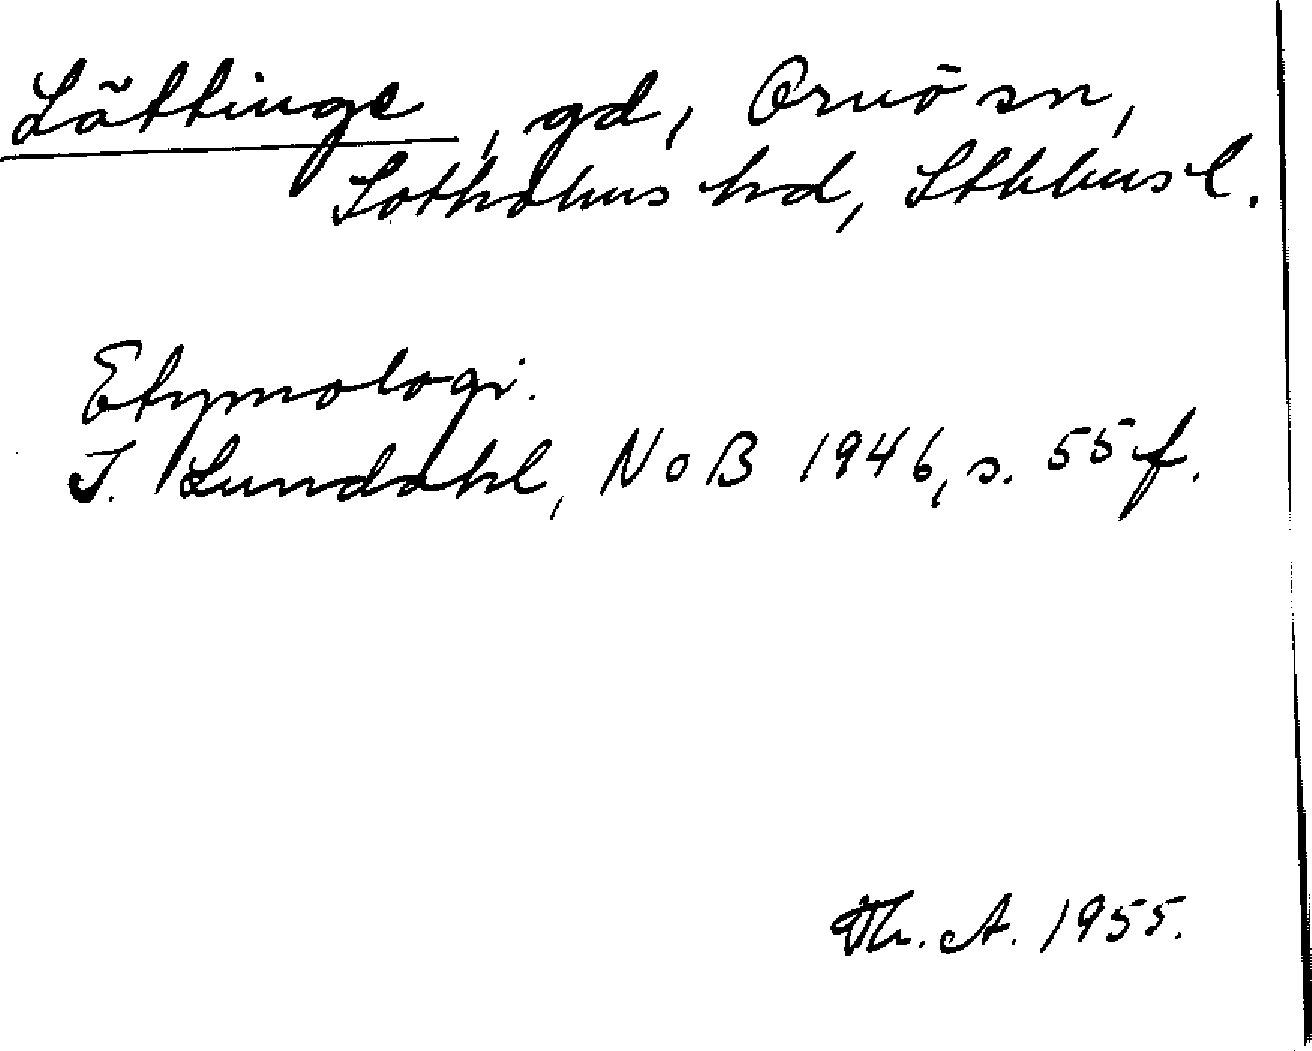 Lättinge, gd, Ornö sn,
Sotholms hd, Sthlms l.
Etymologi.
I. Lundahl, NoB 1946, s. 55 f.
Th. A. 1955.